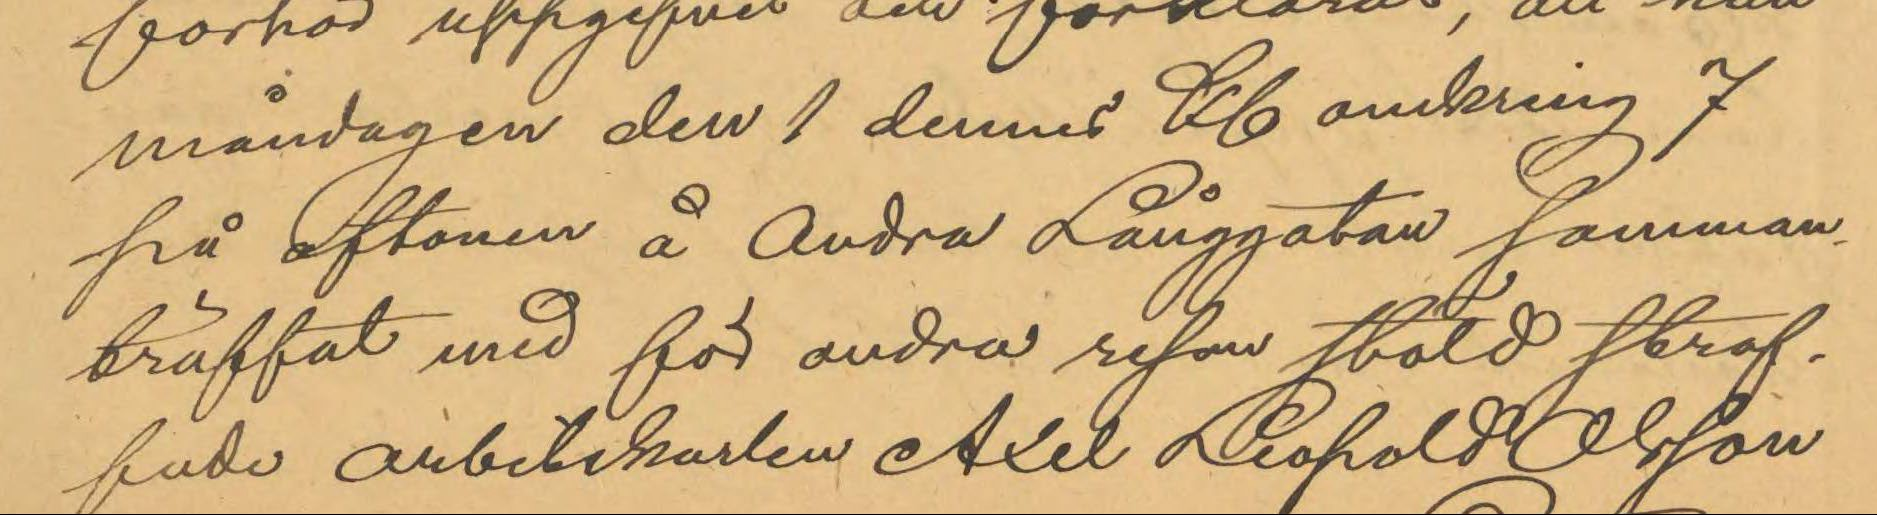 förhör uppgifvit och förklarat, att han
måndagen den 1 dennes Kl omkring 7
på aftonen å Andra Långgatan samman-
träffat med för andra resan stöld straf-
fade arbetskarlen Axel Leopold Olsson